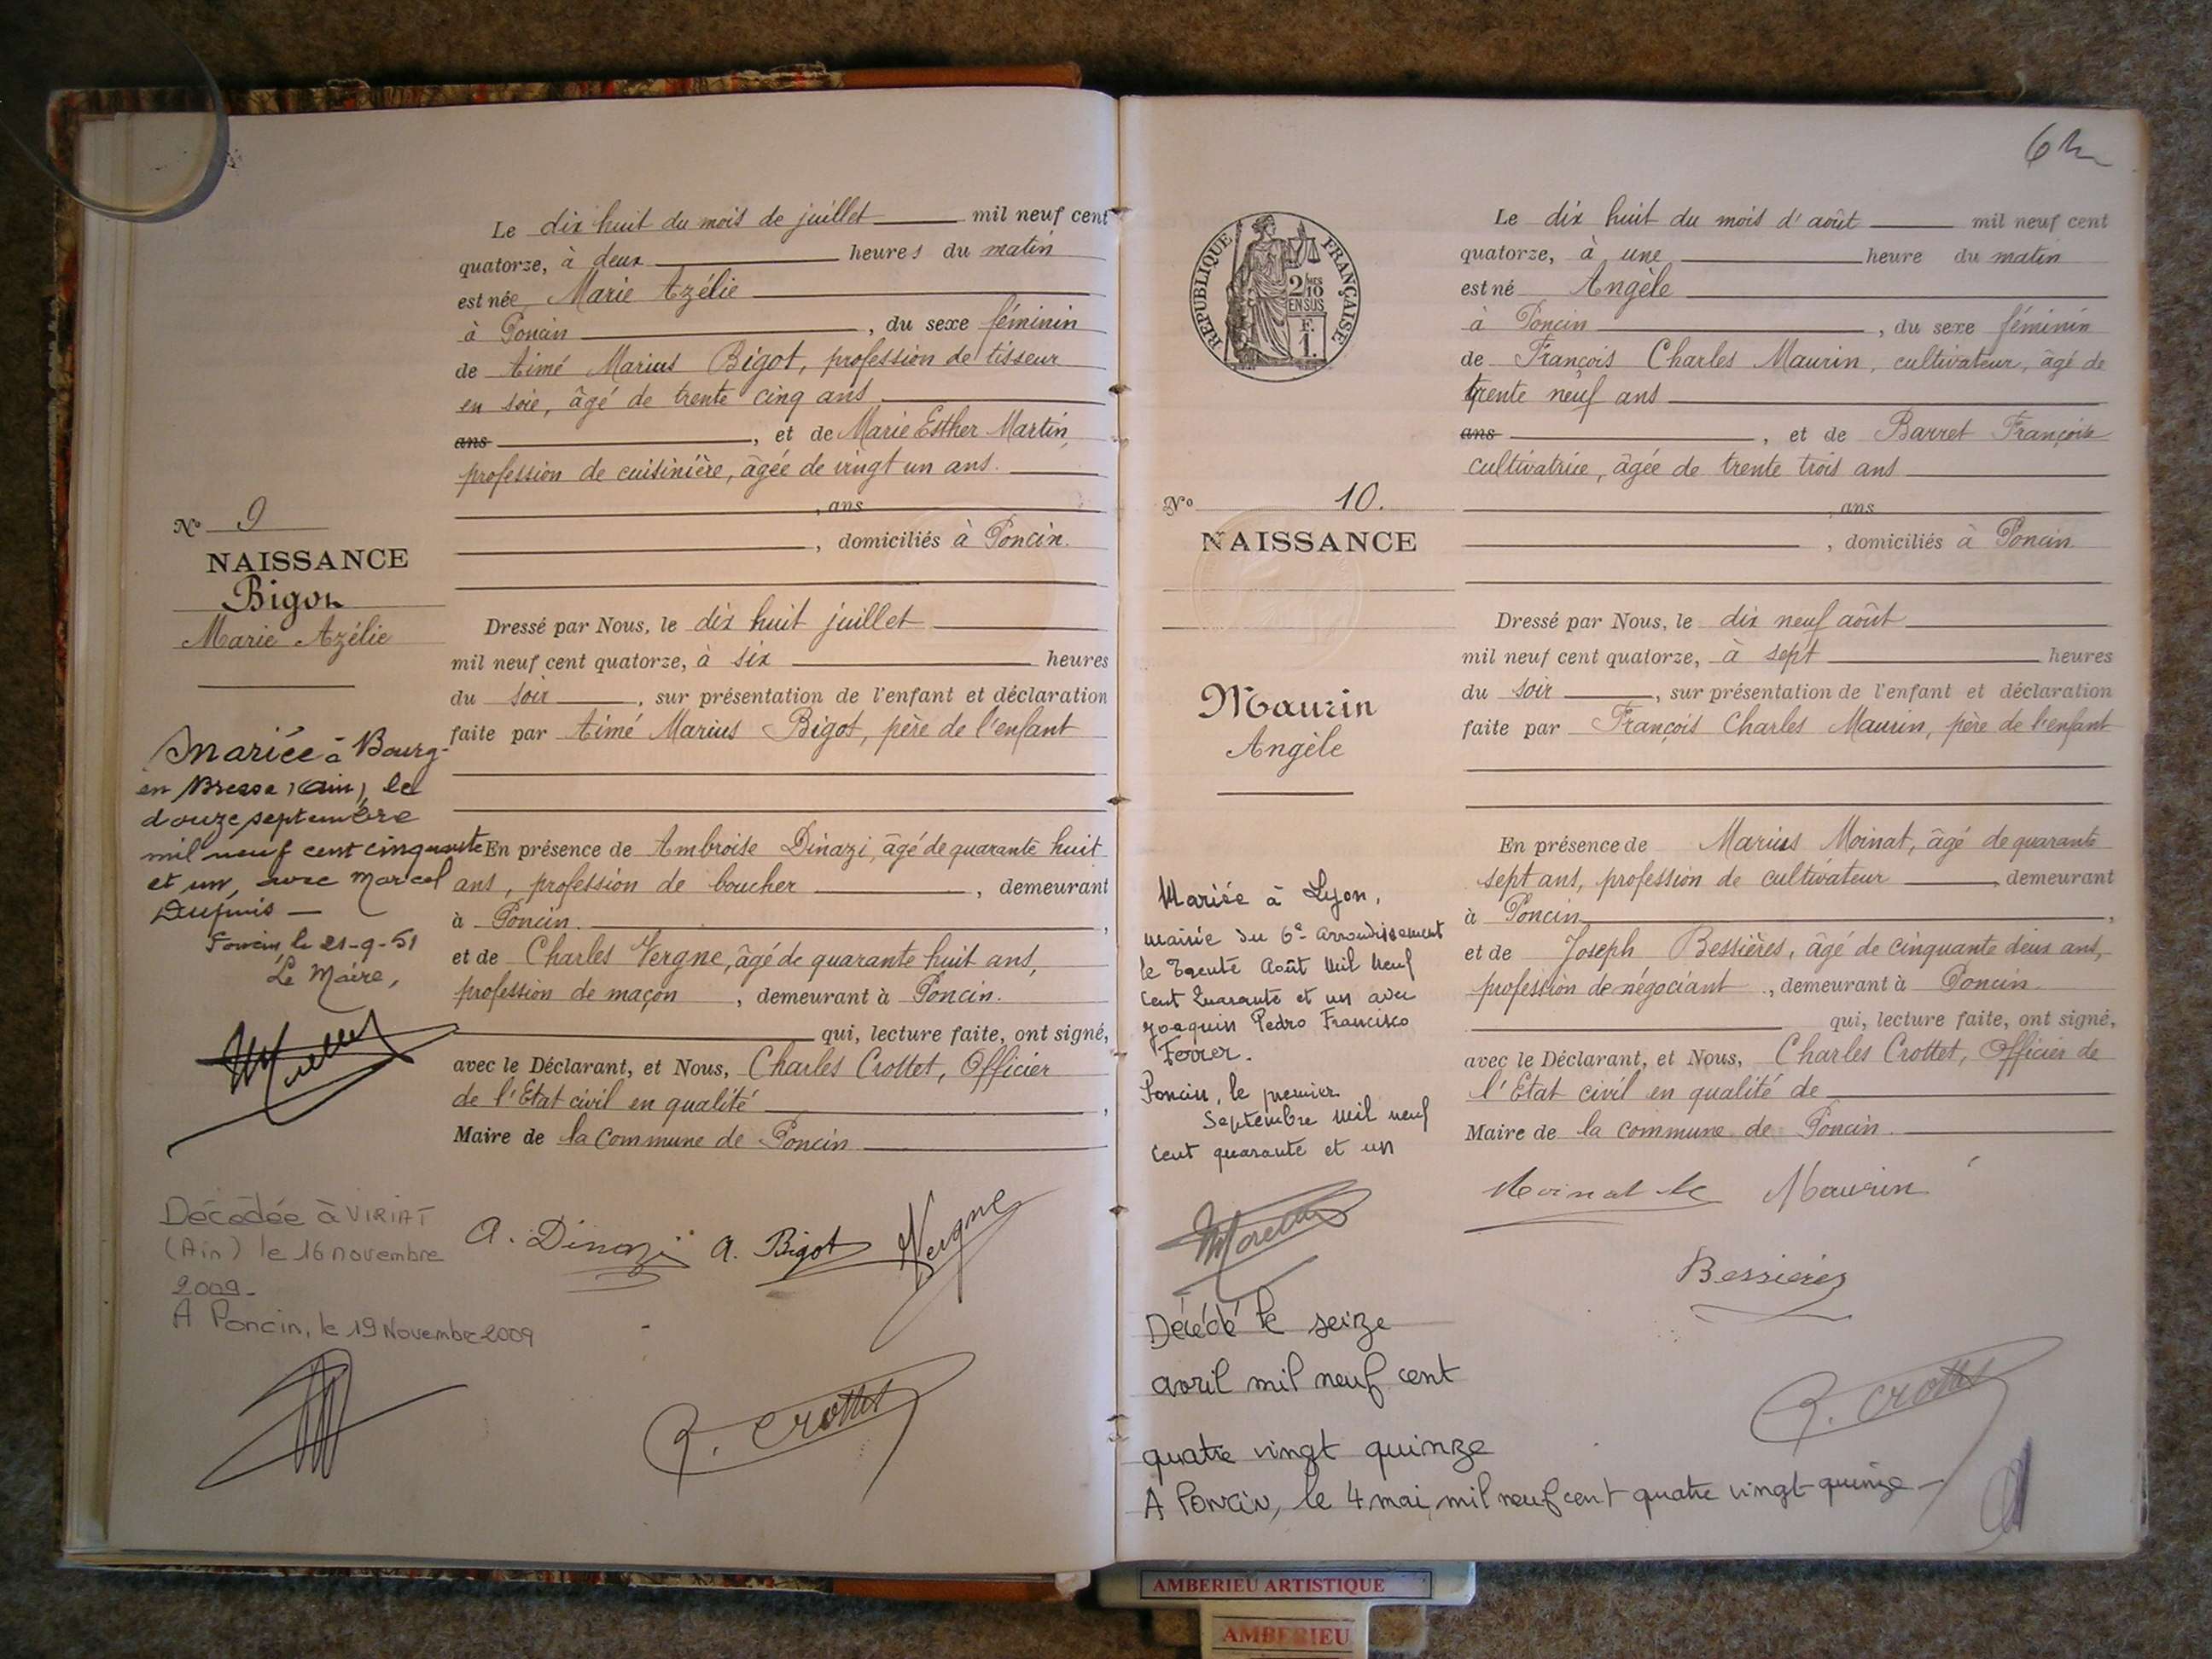 Le dix huit du mois de juillet mil neuf cent
quatorze, à deux heures du matin
est née Marie Azélie
à Poncin, du sexe féminin
de Aimé Marius Bigot, profession de tisseur
en soie, âgé de trente cinq ans
ans, et de Marie Esther Martin,
profession de cuisinière, âgée de vingt un ans.
, ans
, domiciliés à Poncin.
Nº 9
NAISSANCE
Bigot
Marie Azélie
Dressé par Nous, le dix huit juillet
mil neuf cent quatorze, à six heures
du soir, sur présentation de l'enfant et déclaration
faite par Aimé Marius Bigot, père de l'enfant
En présence de Ambroise Dinazi, âgé de quarante huit
ans, profession de boucher, demeurant
à Poncin.,
et de Charles Vergne, âgé de quarante huit ans,
profession de maçon, demeurant à Poncin.
qui, lecture faite, ont signé,
avec le Déclarant, et Nous, Charles Crottet, Officier
de l'Etat civil en qualité,
Maire de la Commune de Poncin
Mariée à Bourg-
en Bresse (Ain), le
douze septembre
mil neuf cent cinquante
et un, avec Marcel
Dupuis —
Poncin, le 21-9-51
Le Maire,
Décédée à VIRIAT
(Ain) le 16 novembre
2009-
A Poncin, le 19 Novembre 2009
A. Dinazi A. Bigot Vergne
Crottet
REPUBLIQUE FRANÇAISE
2/10
EN SUS
F.
1.
Le dix huit du mois d'août mil neuf cent
quatorze, à une heure du matin
est né Angèle
à Poncin, du sexe féminin
de François Charles Maurin, cultivateur, âgé de
trente neuf ans
ans, et de Barret
cultivatrice, âgée de trente trois ans
, ans
, domiciliés à Poncin
Nº 10.
NAISSANCE
Maurin
Angèle
Dressé par Nous, le dix neuf août
mil neuf cent quatorze, à sept heures
du soir, sur présentation de l'enfant et déclaration
faite par François Charles Maurin, père de l'enfant
En présence de Marius Moinat, âgé de quarante
sept ans, profession de cultivateur, demeurant
à Poncin,
et de Joseph Bessières, âgé de cinquante deux ans,
profession de négociant, demeurant à Poncin
qui, lecture faite, ont signé,
avec le Déclarant, et Nous, Charles Crottet, Officier de
l'Etat civil en qualité de
Maire de la commune de Poncin.
Mariée à Lyon,
mairie du 6e arrondissement
le trente Août Mil Neuf
Cent Quarante et un avec
Joaquin Pedro Francisco
Ferrer.
Poncin, le premier
Septembre mil neuf
Cent quarante et un
Décédé le seize
avril mil neuf cent
quatre vingt quinze
A Poncin, le 4 mai, mil neuf cent quatre vingt-quinze
Moinat Maurin
Bessières
Crottet
AMBERIEU ARTISTIQUE
AMBERIEU